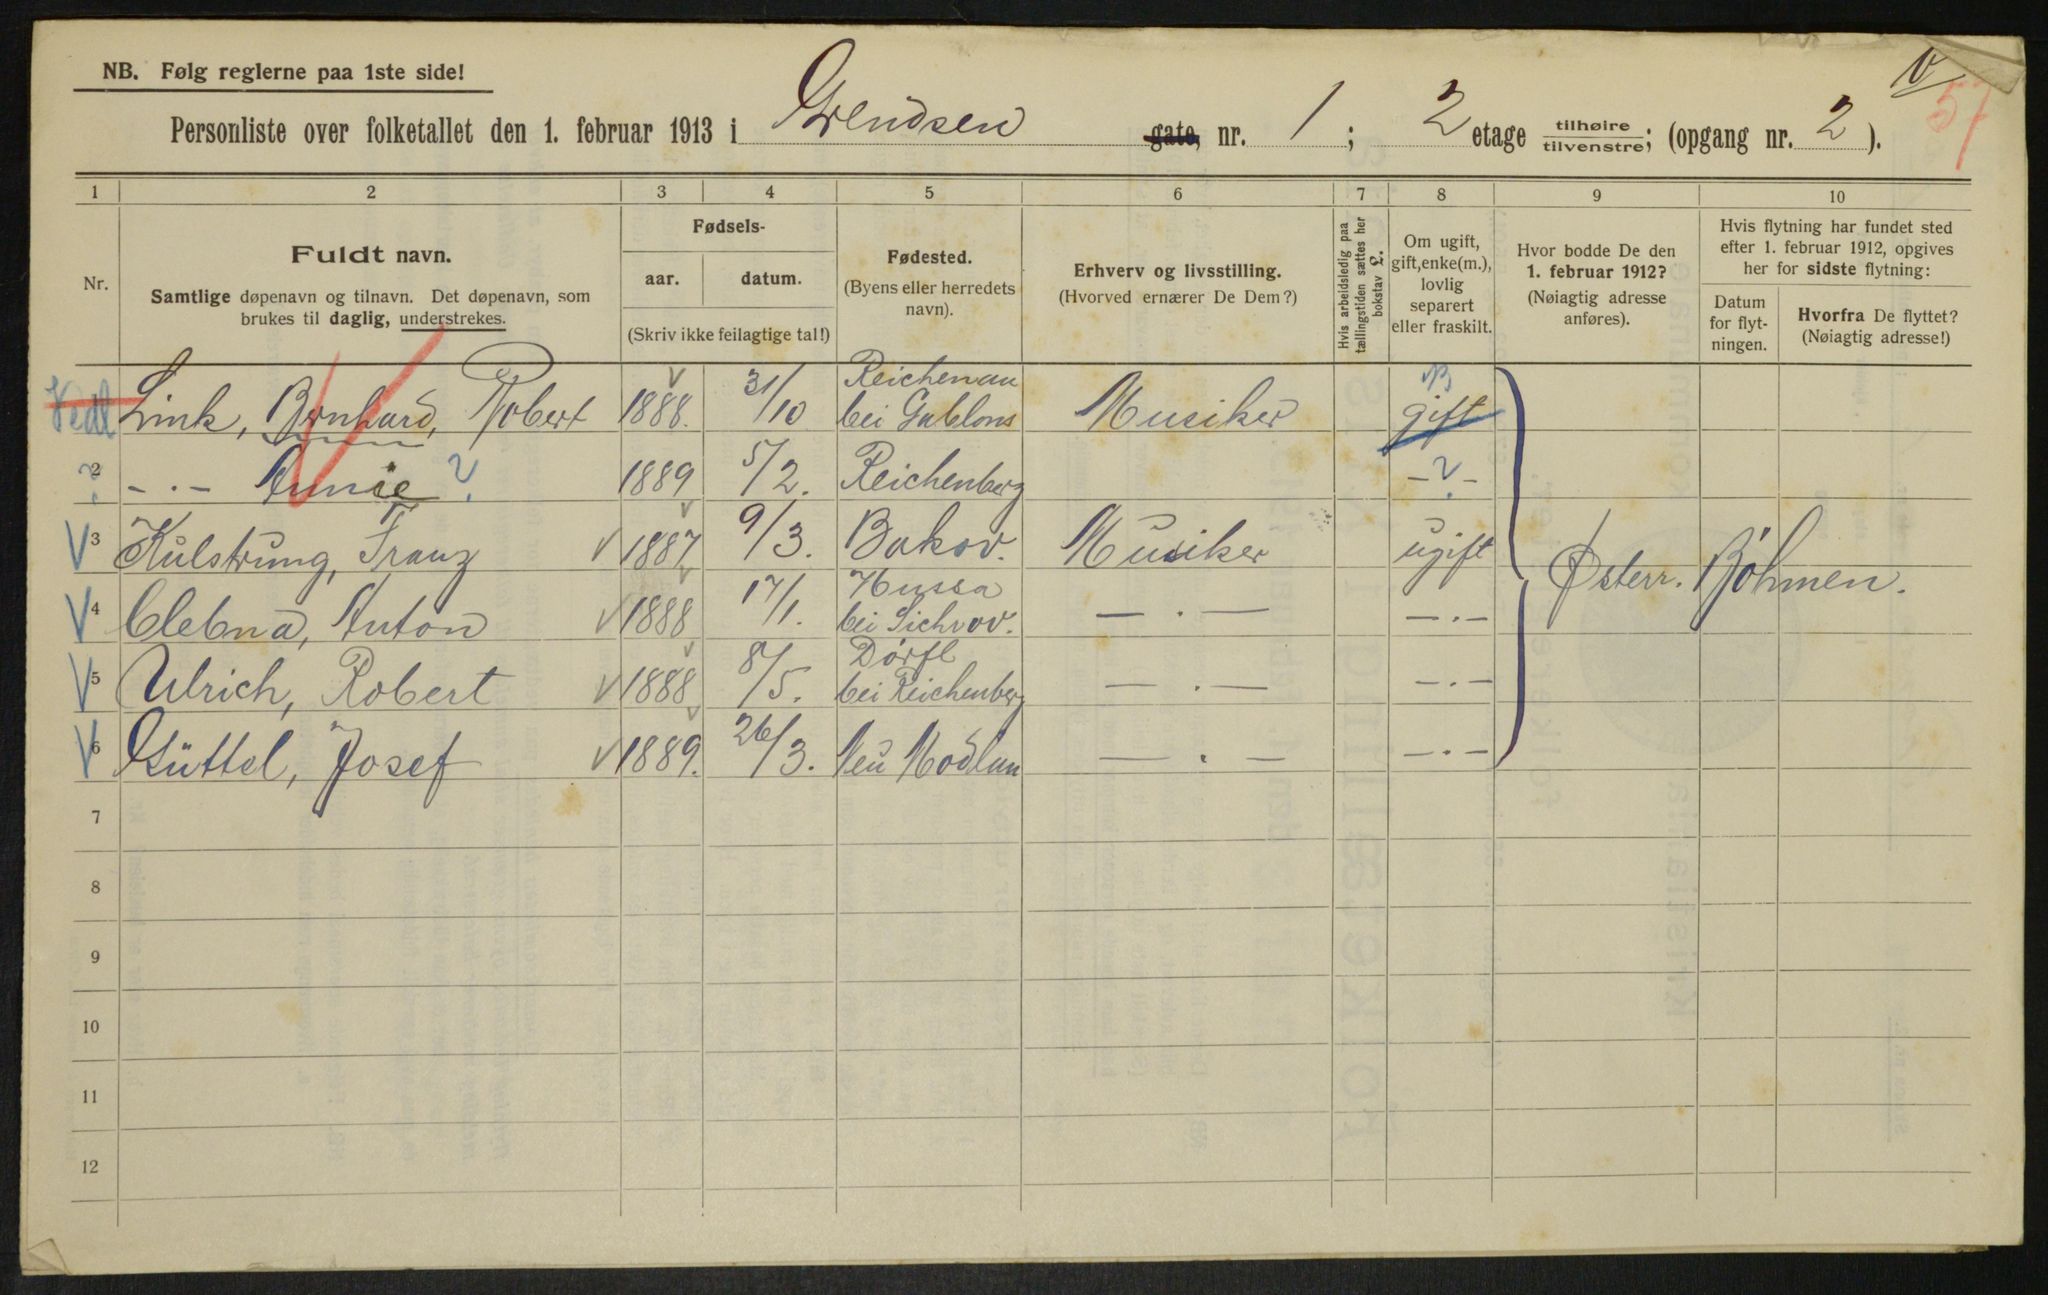 NB. Følg reglerne paa 1ste side!
V
57
Personliste over folketallet den 1. februar 1913 i Grendsen gate, nr. 1; 2 etage tilhøire tilvenstre; (opgang nr. 2).
1 2 3 4 5 6 7 8 9 10
Nr.
Fuldt navn.
Samtlige døpenavn og tilnavn. Det døpenavn, som
brukes til daglig, understrekes.
Fødsels-
aar. datum.
(Skriv ikke feilagtige tal!)
Fødested.
(Byens eller herredets
navn).
Erhverv og livsstilling.
(Hvorved ernærer De Dem?)
Hvis arbeidsledig paa
tællingstiden sættes her
bokstav L.
Om ugift,
gift, enke(m.),
lovlig
separert
eller fraskilt.
Hvor bodde De den
1. februar 1912?
(Nøiagtig adresse
anføres).
Hvis flytning har fundet sted
efter 1. februar 1912, opgives
her for sidste flytning:
Datum
for flyt-
ningen.
Hvorfra De flyttet?
(Nøiagtig adresse!)
Link, Bernhard, Robert 1888. 31/10 Reichenau bei Gablons Musiker gift
2 ? -.- Annie ? 1889 5/2. Reichenberg -?-
V 3 Kulstrung, Franz V 1887 9/3. Bakov. Musiker ugift
Østerr. Böhmen.
V 4 Clebna, Anton V 1888 17/1. Hussa bei Sichrov. — . — -.-
V 5 Ulrich, Robert V 1888 8/5. Dörfl bei Reichenberg — . — -.-
V 6 Güttel, Josef V 1889. 26/3. Neu Modlan — . — -.-
7
8
9
10
11
12